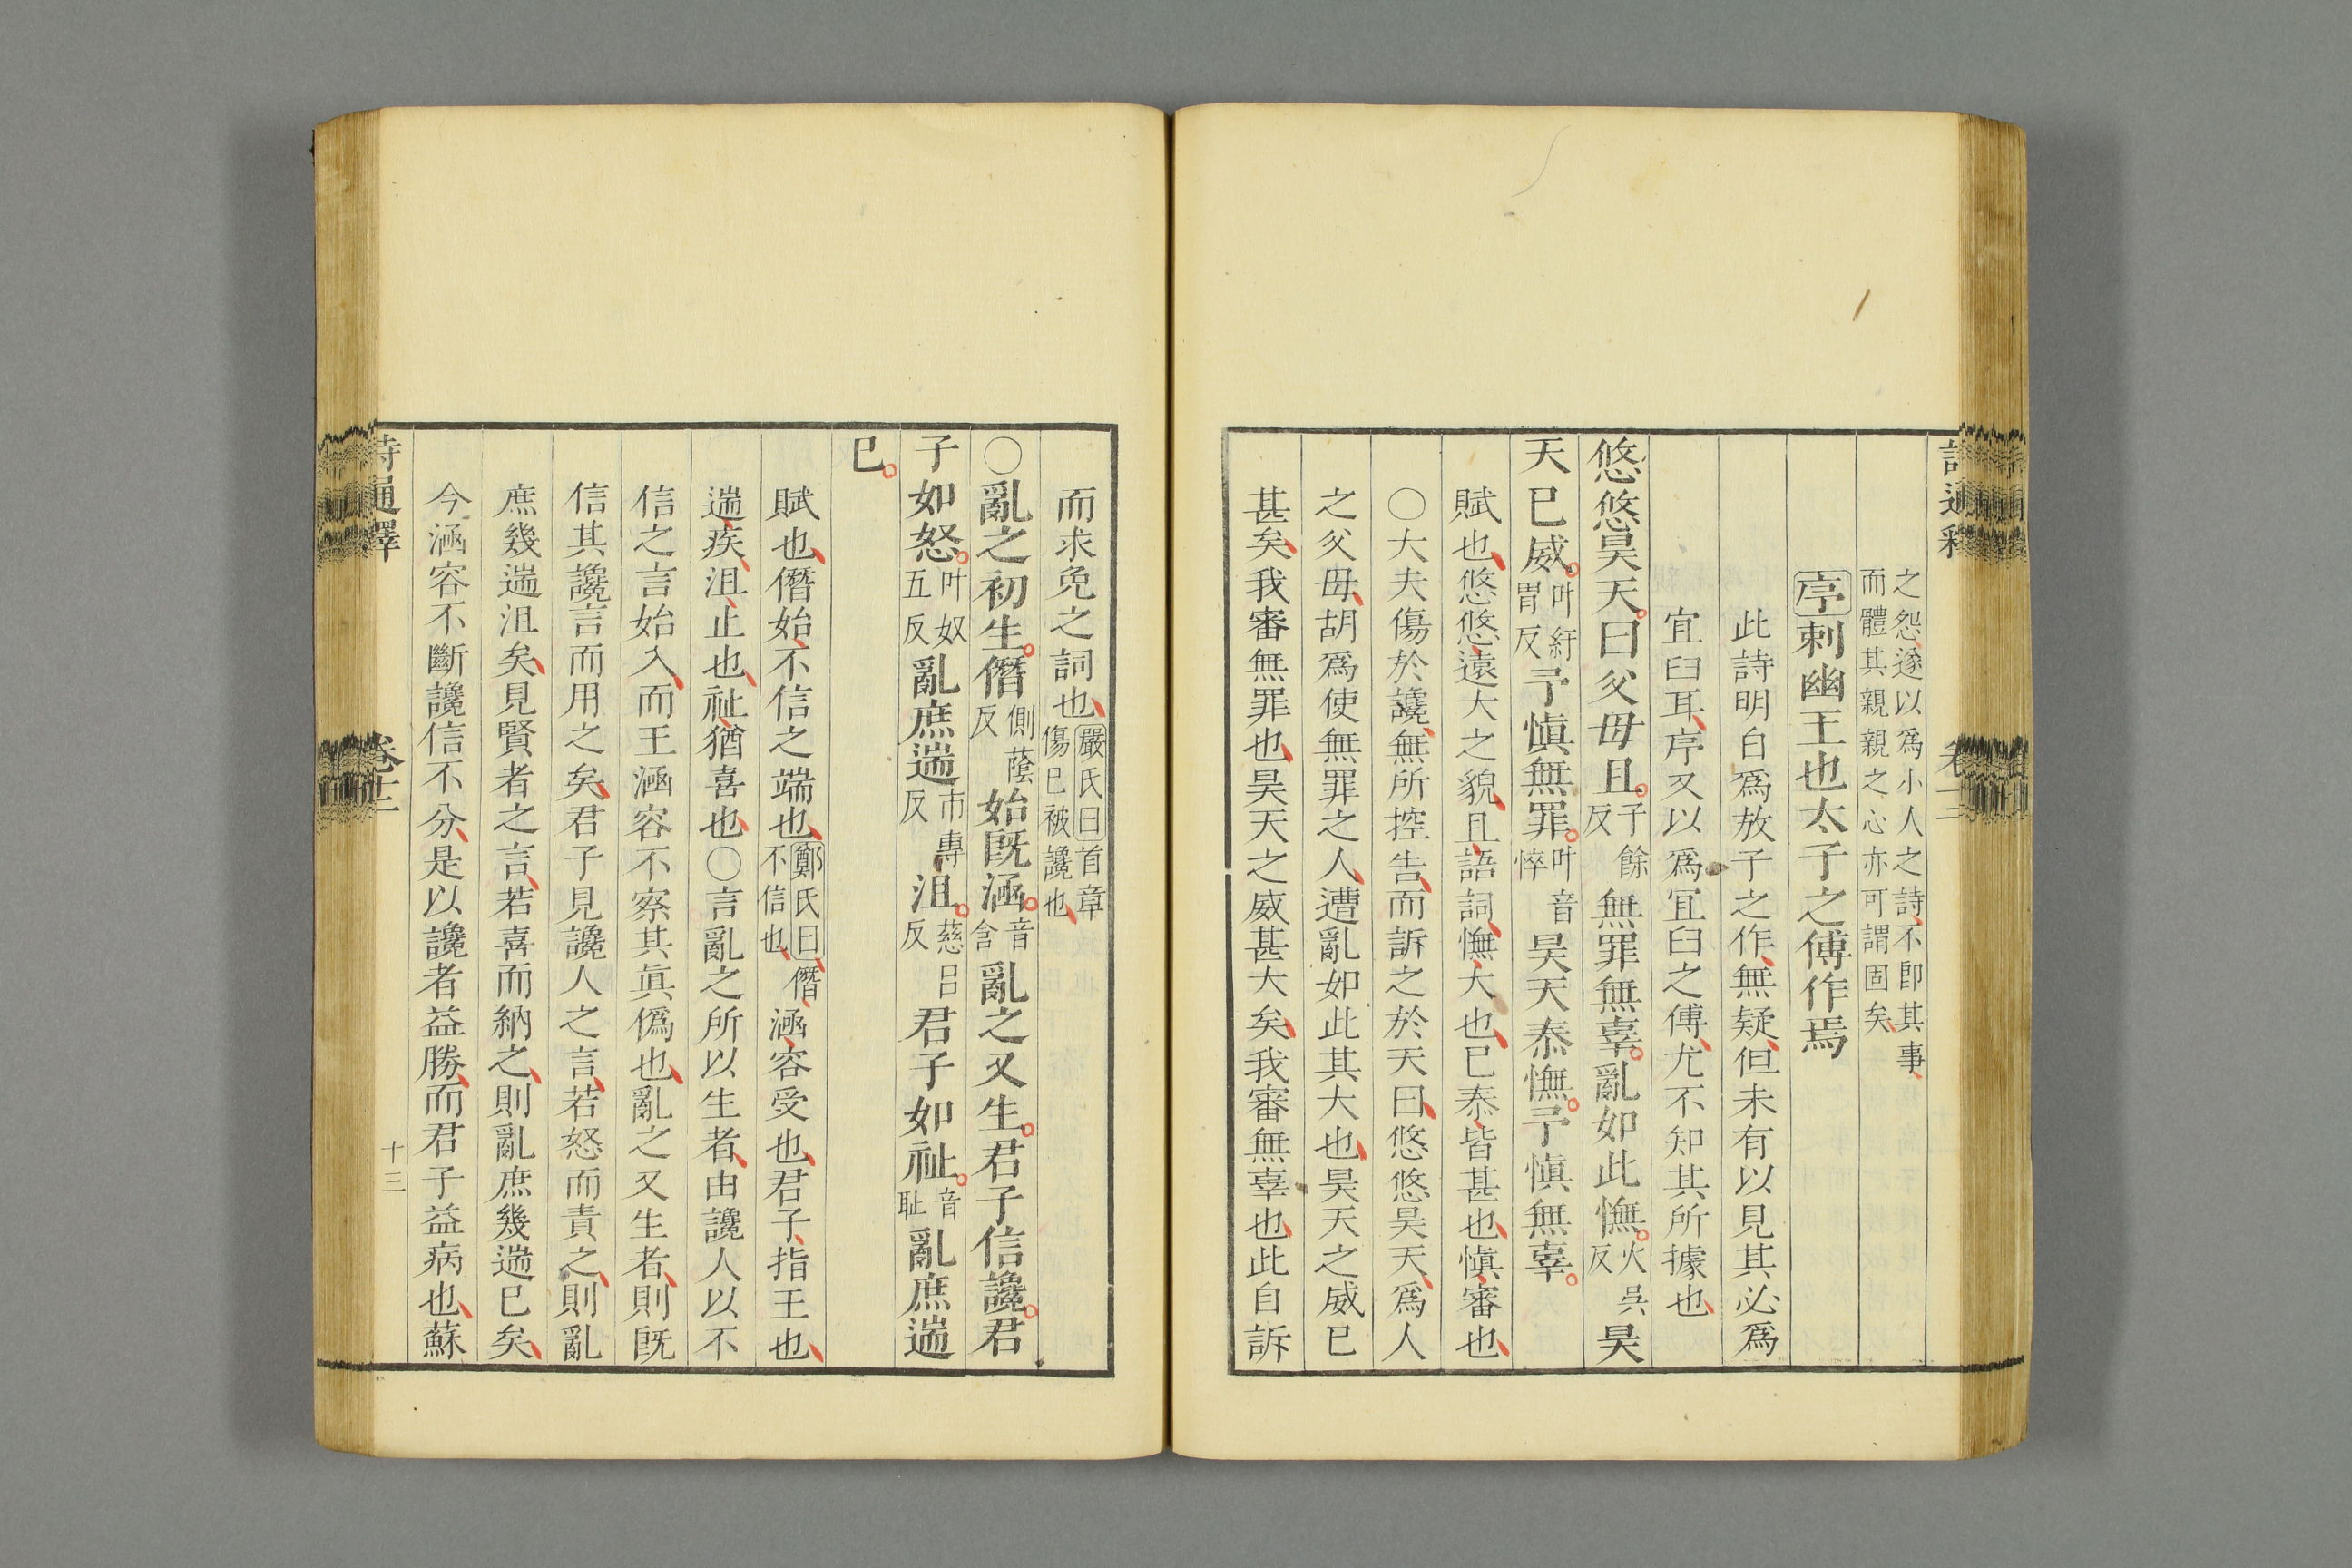 詩通釋
卷十二
之怨遂以爲小人之詩不卽其事
而體其親親之心亦可謂固矣
序刺幽王也太子之傅作焉
此詩明白爲放子之作無疑但未有以見其必爲
宜臼耳序又以爲宜臼之傅尤不知其所據也
悠悠昊天曰父母且子餘反無罪無辜亂如此憮火吳反昊
天巳威叶紆胃反予愼無罪叶音悴昊天泰憮予愼無辜
賦也悠悠遠大之貌且語詞憮大也巳泰皆甚也愼審也
○大夫傷於讒無所控告而訴之於天曰悠悠昊天爲人
之父母胡爲使無罪之人遭亂如此其大也昊天之威巳
甚矣我審無罪也昊天之威甚大矣我審無辜也此自訴
而求免之詞也嚴氏曰首章傷已被讒也
○亂之初生僭側蔭反始旣涵音含亂之又生君子信讒君
子如怒叶奴五反亂庶遄市專反沮慈呂反君子如祉音耻亂庶遄
巳
賦也僭始不信之端也鄭氏曰僭不信也涵容受也君子指王也
遄疾沮止也祉猶喜也○言亂之所以生者由讒人以不
信之言始入而王涵容不察其眞僞也亂之又生者則旣
信其讒言而用之矣君子見讒人之言若怒而責之則亂
庶幾遄沮矣見賢者之言若喜而納之則亂庶幾遄巳矣
今涵容不斷讒信不分是以讒者益勝而君子益病也蘇
詩通釋
卷十二
十三